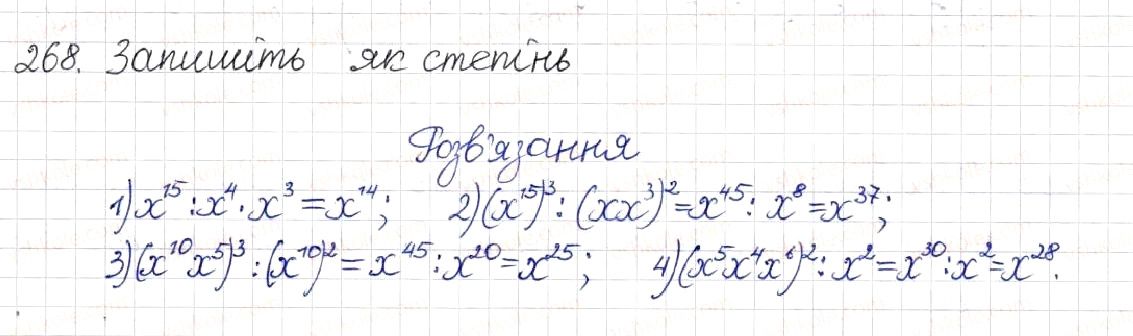 268. Запишіть як степінь
Розв'язання
1) x¹⁵ : x⁴ · x³ = x¹⁴; 2) (x¹⁵)³ : (xx³)² = x⁴⁵ : x⁸ = x³⁷;
3) (x¹⁰x⁵)³ : (x¹⁰)² = x⁴⁵ : x²⁰ = x²⁵; 4) (x⁵x⁴x⁶)² : x² = x³⁰ : x² = x²⁸.